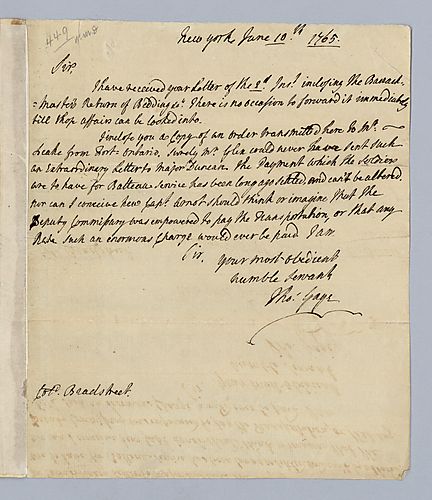 449
New York June 10th 1765.
Sir,
I have received your Letter of the 3d Inst. inclosing the Barrack
=Master's Return of Bedding &c. There is no occasion to forward it immediately
till those affairs can be looked into.
I inclose you a Copy of an order transmitted here to Mr.
Leake from Fort Ontario. Surely Mr. Glen could never have sent such
an extraordinary Letter to Major Duncan. The Payment which the Soldiers
are to have for Batteau service has been long ago settled, and can't be altered,
nor can I conceive how Capt. should think or imagine that the
Deputy Commissary was empowered to pay the Transportation, or that any
such an enormous Charge would ever be paid I am
Sir,
your most obedient
humble Servant
Thos. Gage
Colo. Bradstreet.